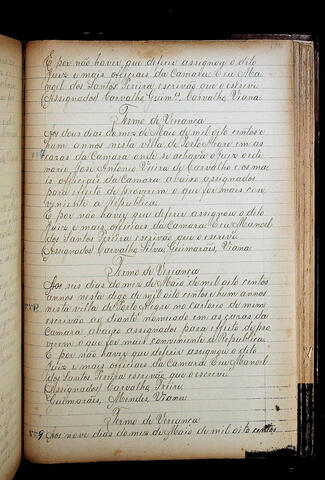 E por não haver que deferir assignou o dito
Juiz e mais officiaes da Camara. Eu Ma-
noel dos Santos Pereira, escrivão que o escrevi
(Assignados) Carvalho, Guimes, Carvalho, Viana.
Termo de Vereança
Aos dous dias do mez de Maio de mil oito centos e
hum annos nesta villa de Porto Alegre em as
cazas da Camara onde se achava o Juiz ordi-
nario José Antonio Vieira de Carvalho e os ma-
is officiaes da Camara abaixo assignados
para effeito de proverem o que for mais con-
viniente a Republica.
E por não haver que deferir assignou o dito
Juiz e mais officiaes da Camara. Eu Manoel
dos Santos Pereira escrivão que o escrevi
(Assignados) Carvalho, Silva, Guimarães, Viana
Termo de Vereança
Aos seis dias do mez de Maio de mil oito centos
annos nesta digo de mil oito centos e hum annos
nesta villa de Porto Alegre no cartorio de mim
escrivão ao diante nomeado em as cazas da
Camara abaixo assignados para effeito de pro-
verem o que for mais conviniente a Republica.
E por não haver que deferir assignou o dito
Juiz e mais officiaes da Camara. Eu Manoel
dos Santos Pereira escrivão que o escrevi
(Assignados) Carvalho, Freire
Guimarães, Mendes, Viana
Termo de Vereança
9 Aos nove dias do mez de Maio de mil oito centos